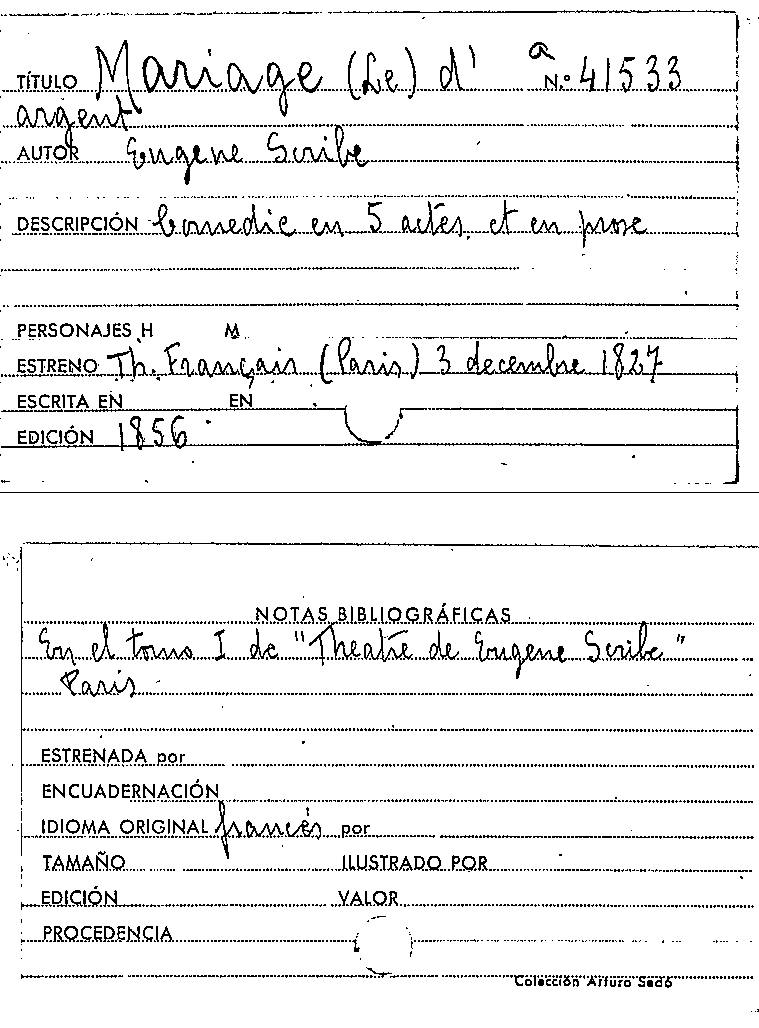 TÍTULO Mariage (Le) d' a N.º 41533
argent
AUTOR Eugene Scribe
DESCRIPCIÓN Comedie en 5 actes, et en prose
PERSONAJES H M
ESTRENO Th. Français (Paris) 3 decembre 1827
ESCRITA EN EN
EDICIÓN 1856
NOTAS BIBLIOGRÁFICAS
En el tomo I de "Theatre de Eugene Scribe"
Paris
ESTRENADA por
ENCUADERNACIÓN
IDIOMA ORIGINAL francés por
TAMAÑO ILUSTRADO POR
EDICIÓN VALOR
PROCEDENCIA
Colección Arturo Sedó